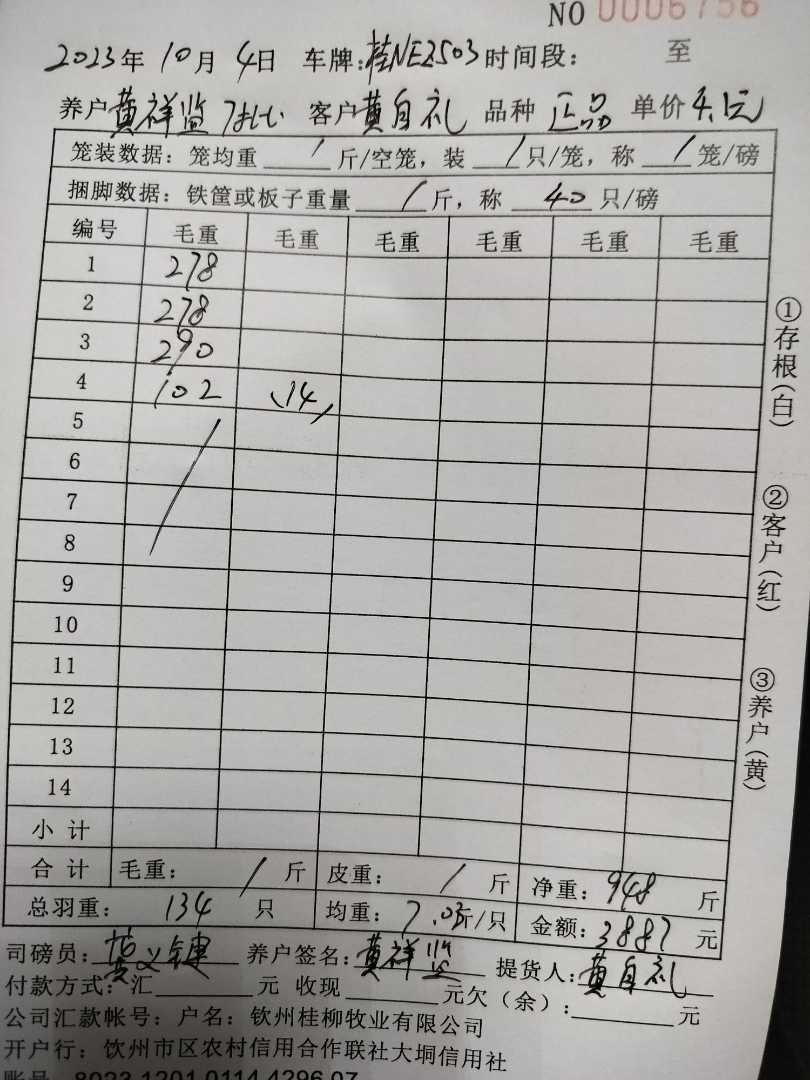 NO 0006756
2023年 10月 4日 车牌:桂NE2503 时间段: 至
养户 黄祥监 客户 黄自礼 品种 正品 单价 4.1元
笼装数据: 笼均重 / 斤/空笼, 装 / 只/笼, 称 / 笼/磅
捆脚数据: 铁筐或板子重量 / 斤, 称 40 只/磅
编号 毛重 毛重 毛重 毛重 毛重 毛重
1 278
2 278
3 290
4 102 (14)
5
6
7
8
9
10
11
12
13
14
小计
合计 毛重: / 斤 皮重: / 斤 净重: 948 斤
总羽重: 134 只 均重: 7.07斤/只 金额: 3887 元
司磅员: 黄义健 养户签名: 黄祥监 提货人: 黄自礼
付款方式: 汇 元 收现 元欠(余): 元
公司汇款帐号: 户名: 钦州桂柳牧业有限公司
开户行: 钦州市区农村信用合作联社大垌信用社
账号 8023 1201 0114 4296 07
①存根(白)
②客户(红)
③养户(黄)